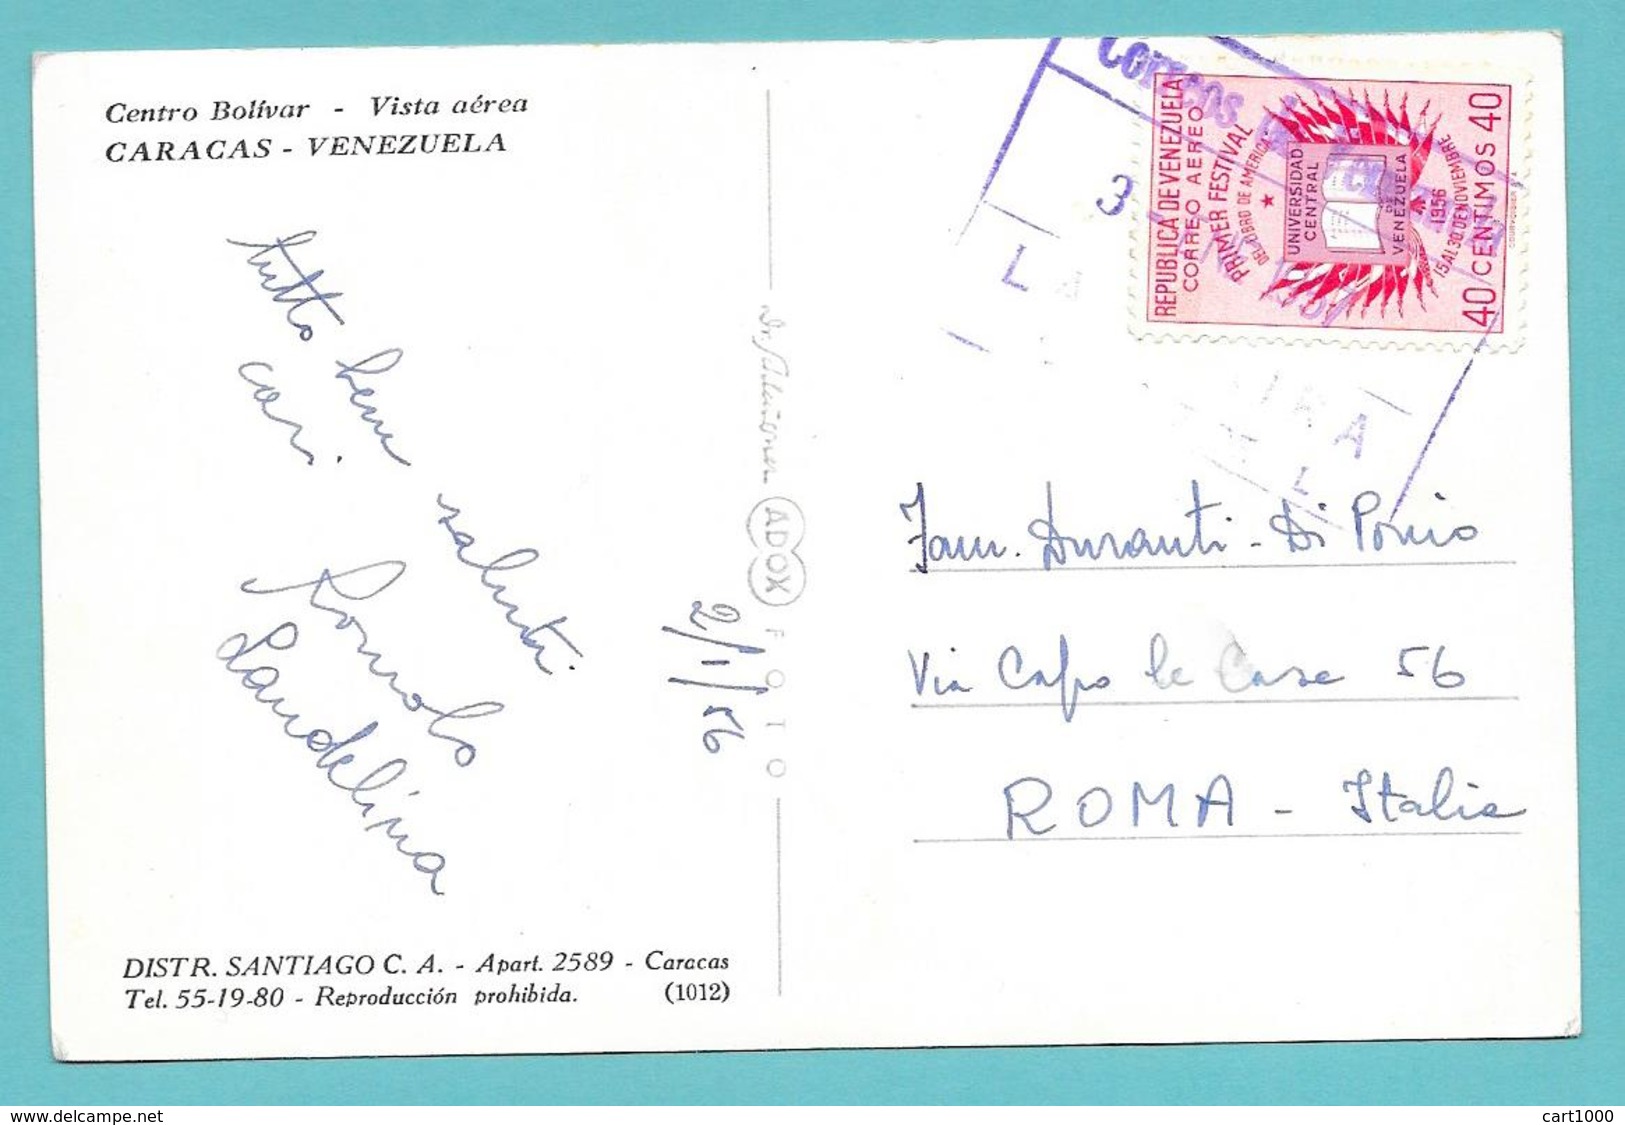 Centro Bolívar - Vista aérea
CARACAS - VENEZUELA
tutto bene
cari.
saluti.
Romolo
Landelina
2/1/56
DISTR. SANTIAGO C. A. - Apart. 2589 - Caracas
Tel. 55-19-80 - Reproducción prohibida. (1012)
ADOX FOTO
Correos
3
LA
IRA
REPUBLICA DE VENEZUELA
CORREO AEREO
PRIMER FESTIVAL
DEL LIBRO DE AMERICA
UNIVERSIDAD
CENTRAL
DE
VENEZUELA
1956
15 AL 30 DE NOVIEMBRE
40 CENTIMOS 40
Fam. Duranti - Di Porzio
Via Capo le Case 56
ROMA - Italia
www.delcampe.net
cart1000